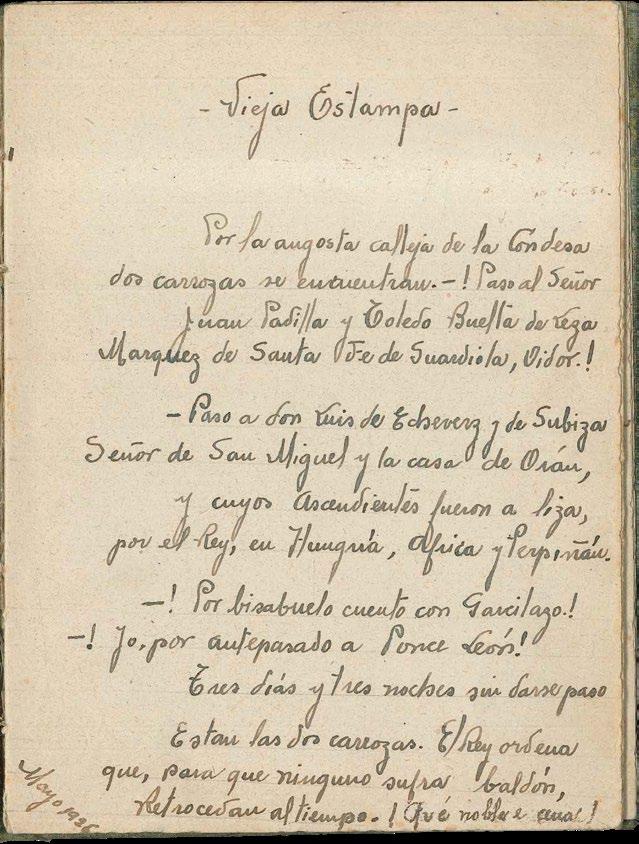 - Vieja Estampa -
Por la angosta calleja de la Condesa
dos carrozas se encuentran. -! Paso al Señor
Juan Padilla y Toledo Buelta de Leza
Marquez de Santa Fe de Guardiola, Vidor.!
- Paso a don Luis de Echeverz y de Subiza
Señor de San Miguel y la casa de Orán,
y cuyos ascendientes fueron a liza,
por el Rey, en Hungría, Africa y Perpiñán.
-! Por bisabuelo cuento con Garcilazo.!
-! Yo, por antepasado a Ponce León!
Tres días y tres noches sin darse paso
Estan las dos carrozas. El Rey ordena
que, para que ninguno sufra baldón,
Retrocedan al tiempo. ! Qué noble e
Mayo